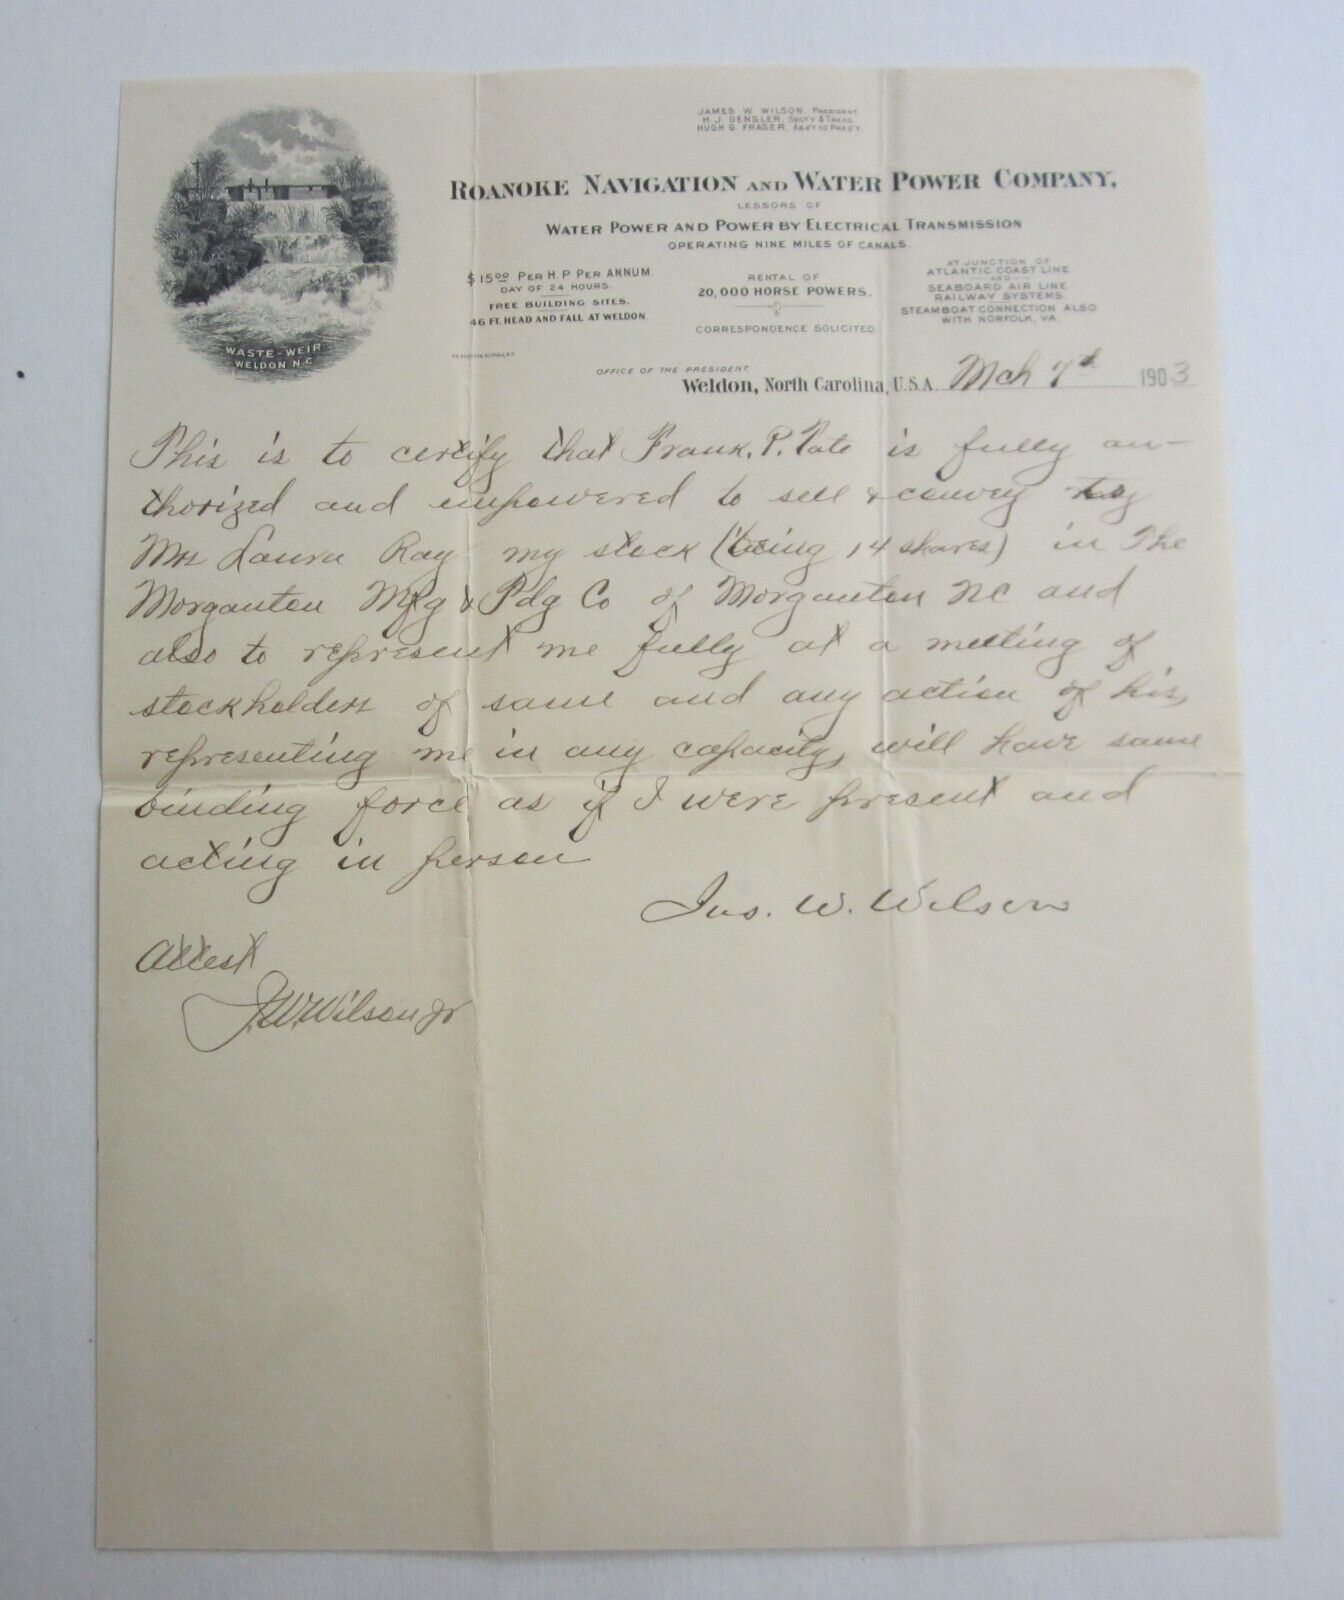 JAMES W. WILSON, PRESIDENT
H. J. GENSLER, SECT'Y & TREAS.
HUGH G. FRASER, ASS'T TO PRES'T.
ROANOKE NAVIGATION AND WATER POWER COMPANY,
LESSORS OF
WATER POWER AND POWER BY ELECTRICAL TRANSMISSION
OPERATING NINE MILES OF CANALS.
$15.00 PER H.P PER ANNUM
DAY OF 24 HOURS.
FREE BUILDING SITES.
46 FT. HEAD AND FALL AT WELDON.
RENTAL OF
20,000 HORSE POWERS.
CORRESPONDENCE SOLICITED.
AT JUNCTION OF
ATLANTIC COAST LINE
AND
SEABOARD AIR LINE
RAILWAY SYSTEMS.
STEAMBOAT CONNECTION ALSO
WITH NORFOLK, VA.
WASTE-WEIR
WELDON N.C.
OFFICE OF THE PRESIDENT
Weldon, North Carolina, U.S.A. Mch 7th 1903
This is to certify that Frank. P. Tate is fully au-
thorized and empowered to sell & convey to
Mrs Laura Ray my stock (being 14 shares) in The
Morganton Mfg & Pdg Co of Morganton NC and
also to represent me fully at a meeting of
stockholders of same and any action of his,
representing me in any capacity, will have same
binding force as if I were present and
acting in person
Jas. W. Wilson
Attest
J.W. Wilson Jr